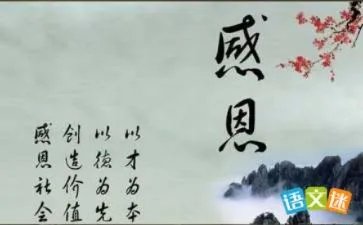 感恩
以才为本
以德为先
创造价值
感恩社会
语文迷